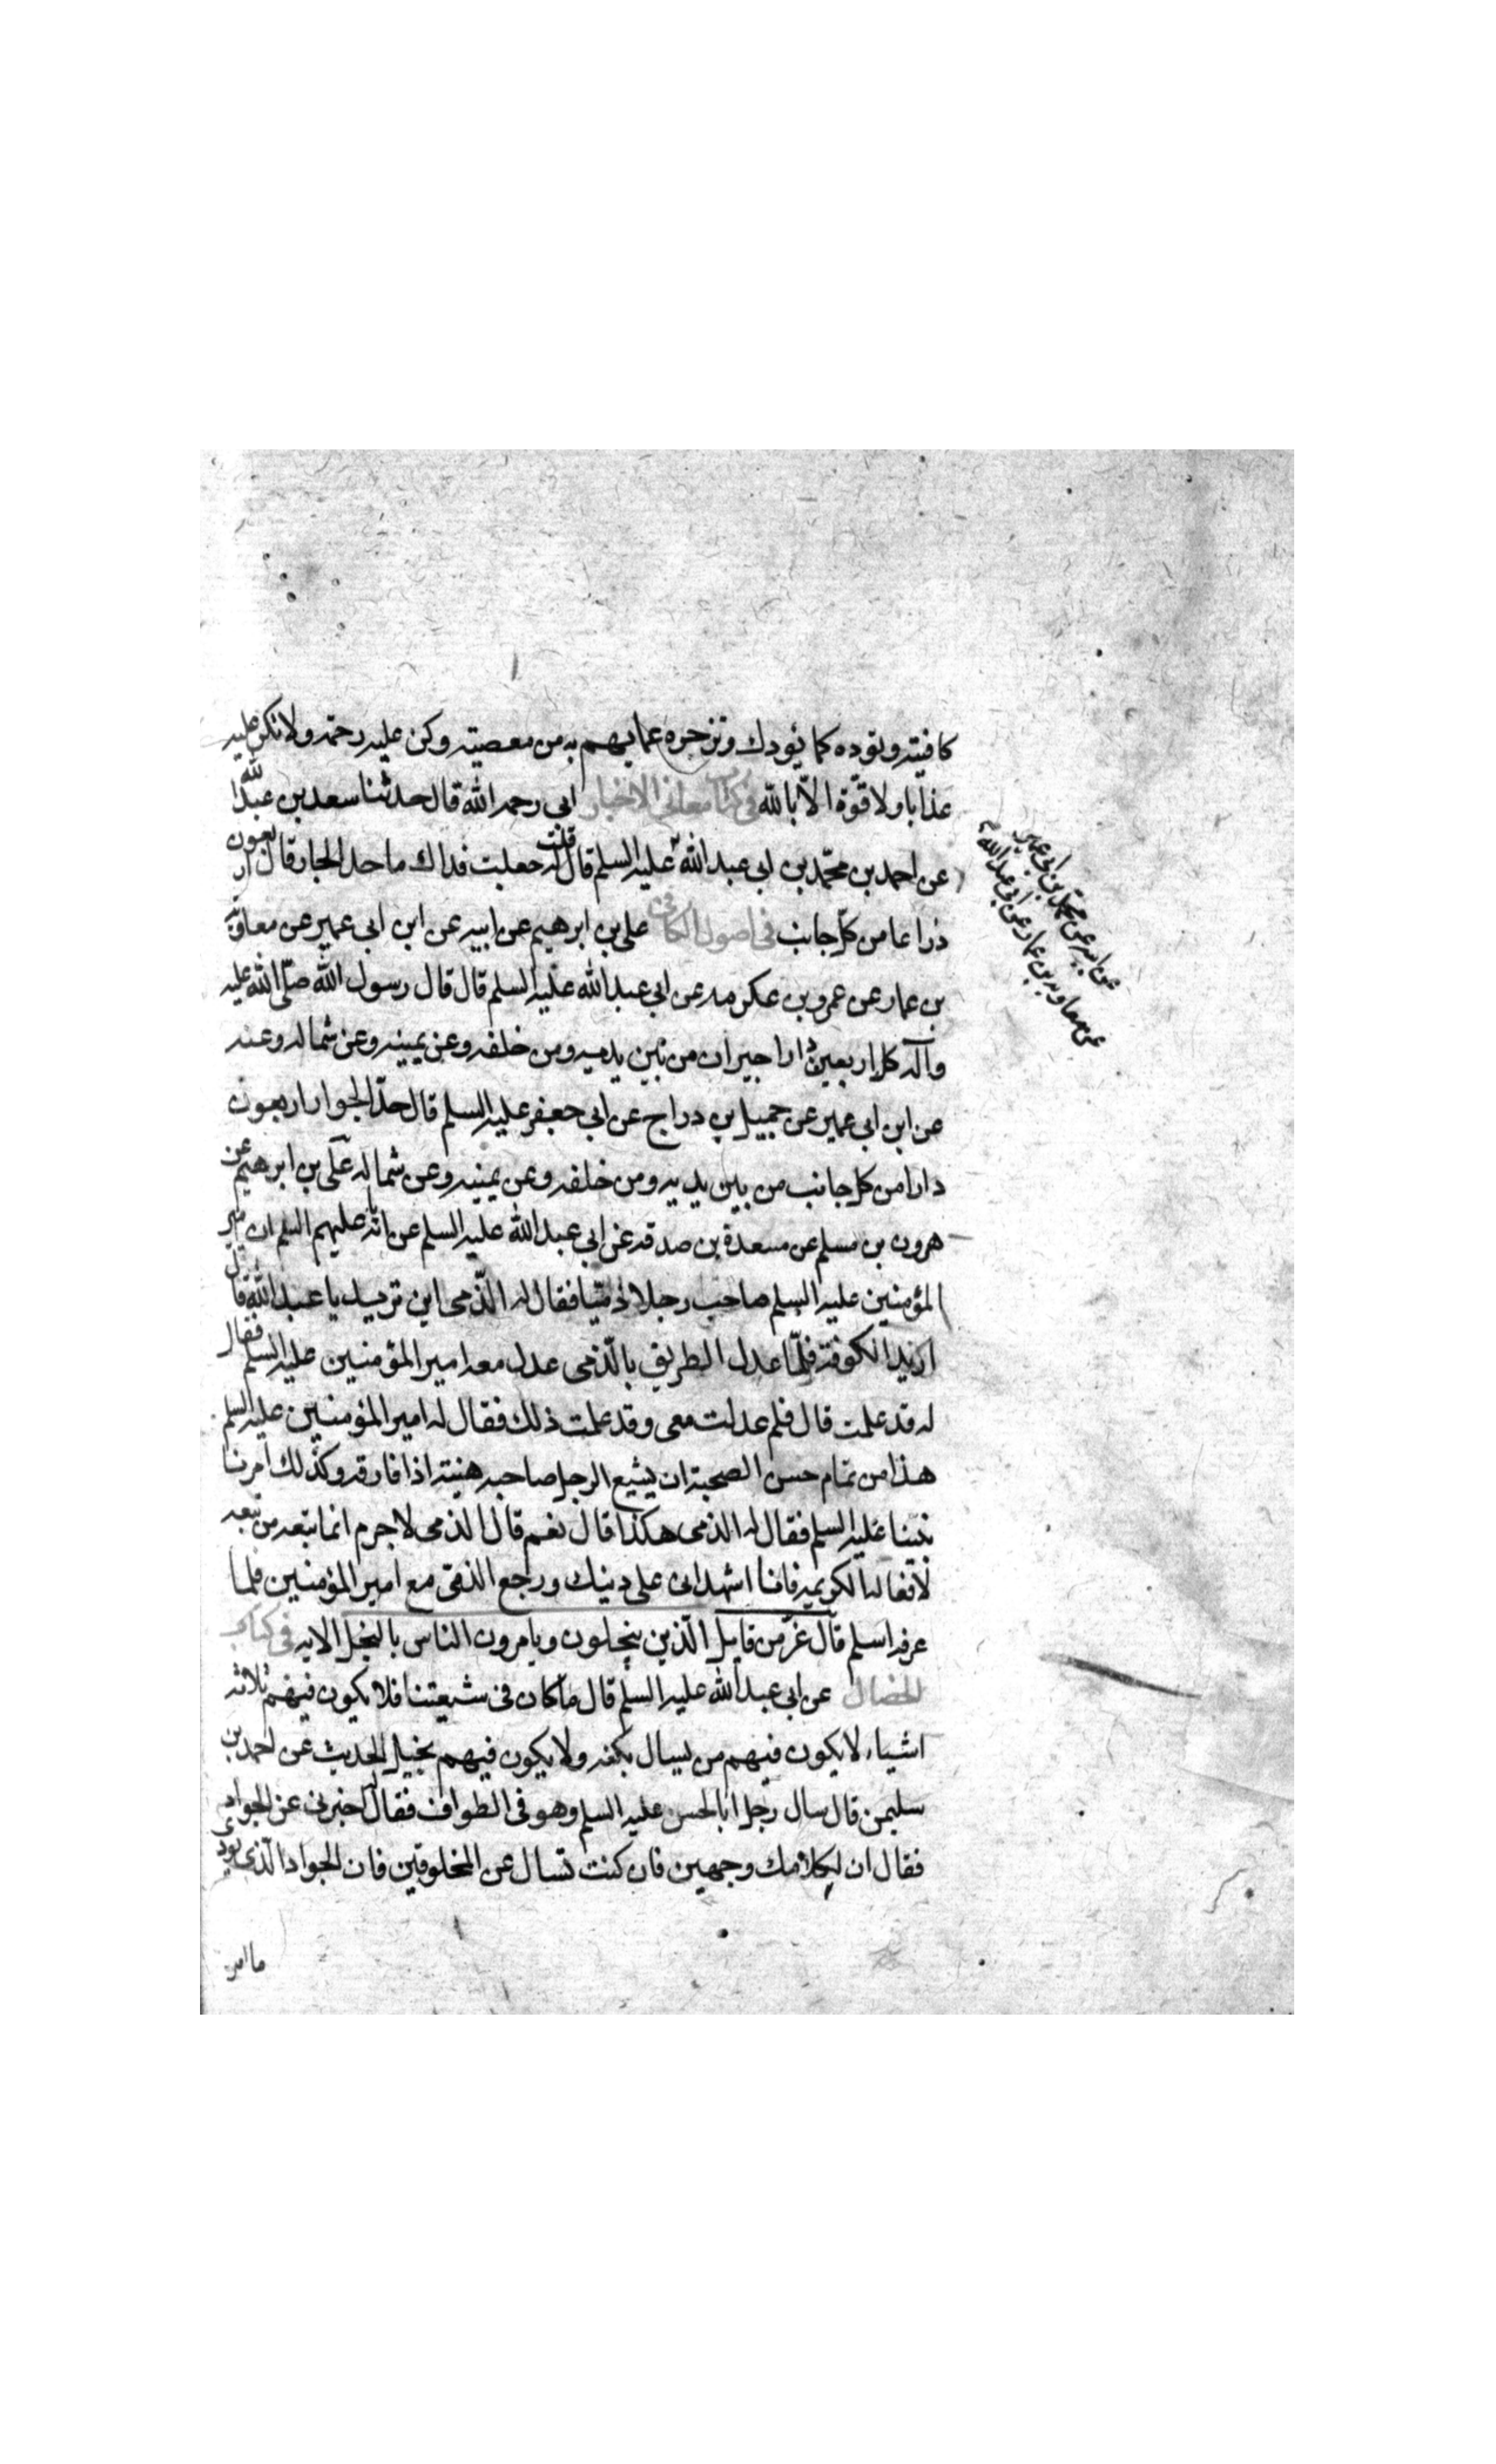 كافيته وتوده كما يؤدك وتزجره عما يهم به من معصيته وكن عليه رحمة ولا تكن عليه
عذابا ولا قوّة الّا بالله في كتاب معاني الاخبار ابي رحمه الله قال حدثنا سعد بن عبد الله
عن احمد بن محمّد بن ابي عبد الله عليه السلم قال قلت له جعلت فداك ما حد الجار قال اربعون
ذراعا من كل جانب في اصول الكافي علي بن ابرهيم عن ابيه عن ابن ابي عمير عن معاوية
بن عمار عن عمرو بن عكرمه عن ابي عبد الله عليه السلم قال قال رسول الله صلّى الله عليه
وآله كل اربعين دارا جيران من بين يديه ومن خلفه وعن يمينه وعن شماله وعنه
عن ابن ابي عمير عن جميل بن دراج عن ابي جعفر عليه السلم قال حدّ الجوار اربعون
دارا من كل جانب من بين يديه ومن خلفه وعن يمينه وعن شماله علي بن ابرهيم عن
هرون بن مسلم عن مسعدة بن صدقه عن ابي عبد الله عليه السلم عن ابائه عليهم السلم ان امير
المؤمنين عليه السلم صاحب رجلا ذميّا فقال له الذّمى اين تريد يا عبد الله قال
اريد الكوفة فلمّا عدل الطريق بالذّمى عدل معه امير المؤمنين عليه السلم فقال
له قد علمت قال فلم عدلت معى وقد علمت ذلك فقال له امير المؤمنين عليه السلم
هذا من تمام حسن الصحبة ان يشيع الرجل صاحبه هنيئة اذا فارقه وكذلك امرنا
نبينا عليه السلم فقال له الذمى هكذا قال نعم قال الذمى لا جرم انما تبعه من تبعه
لافعاله الكريمه فانا اشهد انى على دينك ورجع الذمّى مع امير المؤمنين فلما
عرفه اسلم قال عزّ من قايل الّذين يبخلون ويامرون الناس بالبخل الايه في كتاب
الخصال عن ابي عبد الله عليه السلم قال ما كان في شيعتنا فلا يكون فيهم ثلاثة
اشياء لا يكون فيهم من يسال بكفه ولا يكون فيهم بخيل الحديث عن احمد بن
سليمن قال سال رجل ابا الحسن عليه السلم وهو في الطواف فقال له اخبرني عن الجواد
فقال ان لكلامك وجهين فان كنت تسال عن المخلوقين فان الجواد الذى يؤدي
ما افترض
عن ابيه عن محمّد بن ابي عمير
عن معاويه بن عمار عن ابي عبد الله